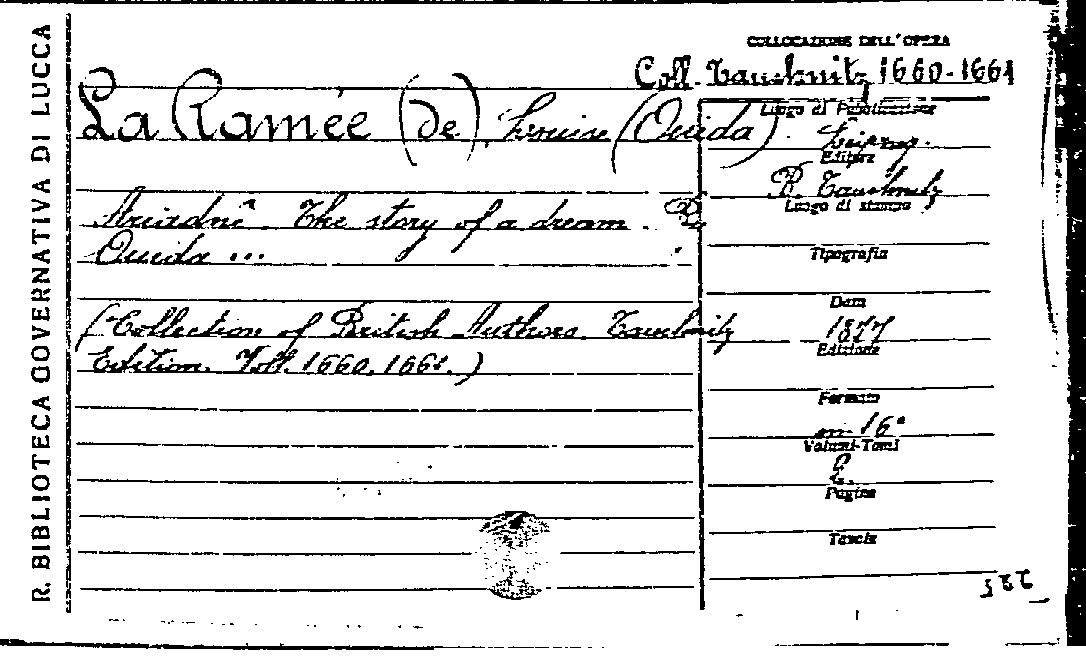 R. BIBLIOTECA GOVERNATIVA DI LUCCA
COLLOCAZIONE DELL'OPERA
Coll. Tauchnitz 1660-1661
La Ramée (de), Louise (Ouida).
Ariadnê. The story of a dream. By
Ouida ...
(Collection of British Authors. Tauchnitz
Edition. Voll. 1660. 1661.)
Luogo di Pubblicazione
Leipzig.
Editore
B. Tauchnitz
Luogo di stampa
Tipografia
Data
1877
Edizione
Formato
in 16°
Volumi-Tomi
2.
Pagine
Tavole